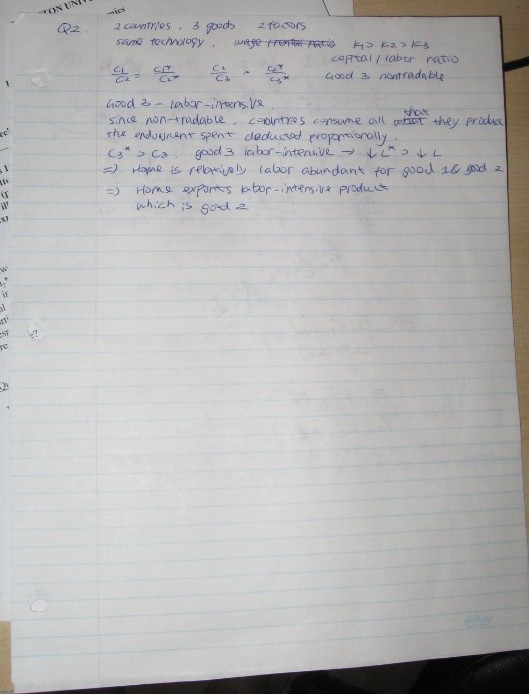 TON UNIV
mics
Q2 2 countries, 3 goods 2 factors
same technology. wage/rental ratio K1 > K2 > K3
capital/labor ratio
C1/C2 = C1*/C2* C2/C3 > C2*/C3* Good 3 nontradable
Good 3 - labor-intensive.
since non-tradable, countries consume all that they produce
the endowment spent deducted proportionally.
C3* > C3, good 3 labor-intensive → ↓L* > ↓L
=) Home is relatively labor abundant for good 1 & good 2
=) Home exports labor-intensive product
which is good 2